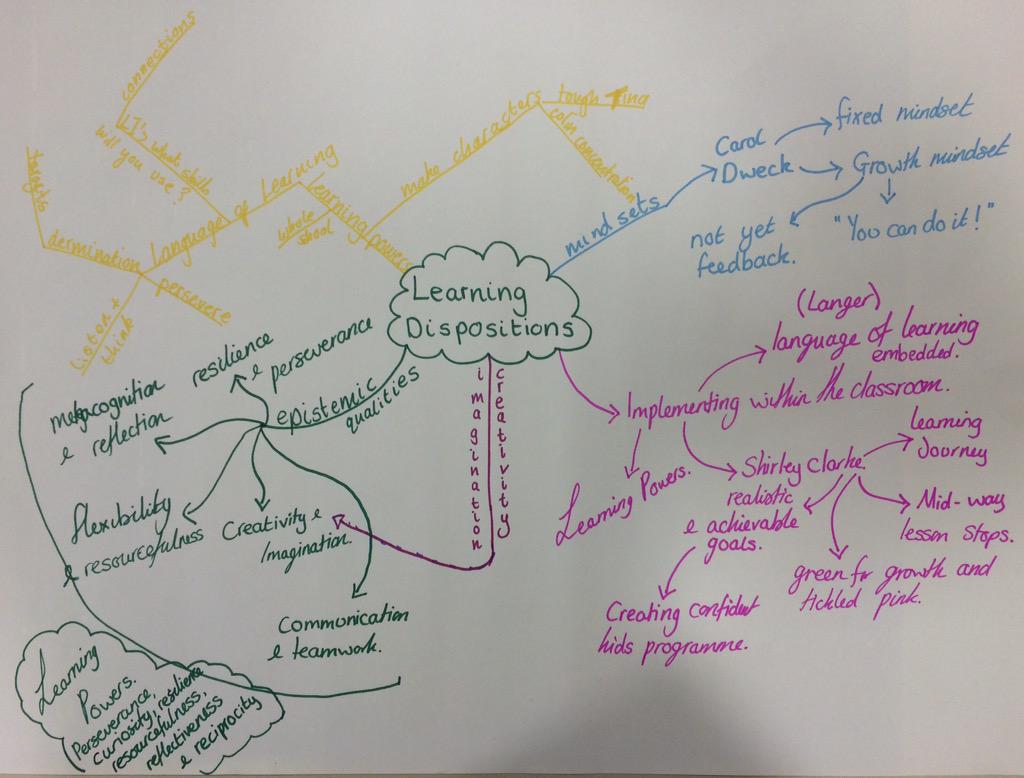 connections
LI's what skills
will you use?
targets
dermination
Listen +
think
persevere
Language of Learning
Learning powers
whole
shool
make characters
tough Tina
colin concentration
Learning
Dispositions
mindsets
Carol
Dweck
fixed mindset
Growth mindset
"You can do it!"
not yet
feedback.
Implementing within the classroom.
(Langer)
language of learning
embedded.
Learning Powers.
Shirley Clarke.
learning
Journey
Mid-way
lesson stops.
green for growth and
tickled pink.
realistic
& achievable
goals.
Creating confident
kids programme.
imagination
creativity
epistemic
qualities
resilience
& perseverance
metacognition
& reflection
flexibility
& resourcefulness
Creativity &
Imagination.
Communication
& teamwork.
Learning
Powers.
Perseverance,
curiosity, resilience
resourcefulness,
reflectiveness
& reciprocity